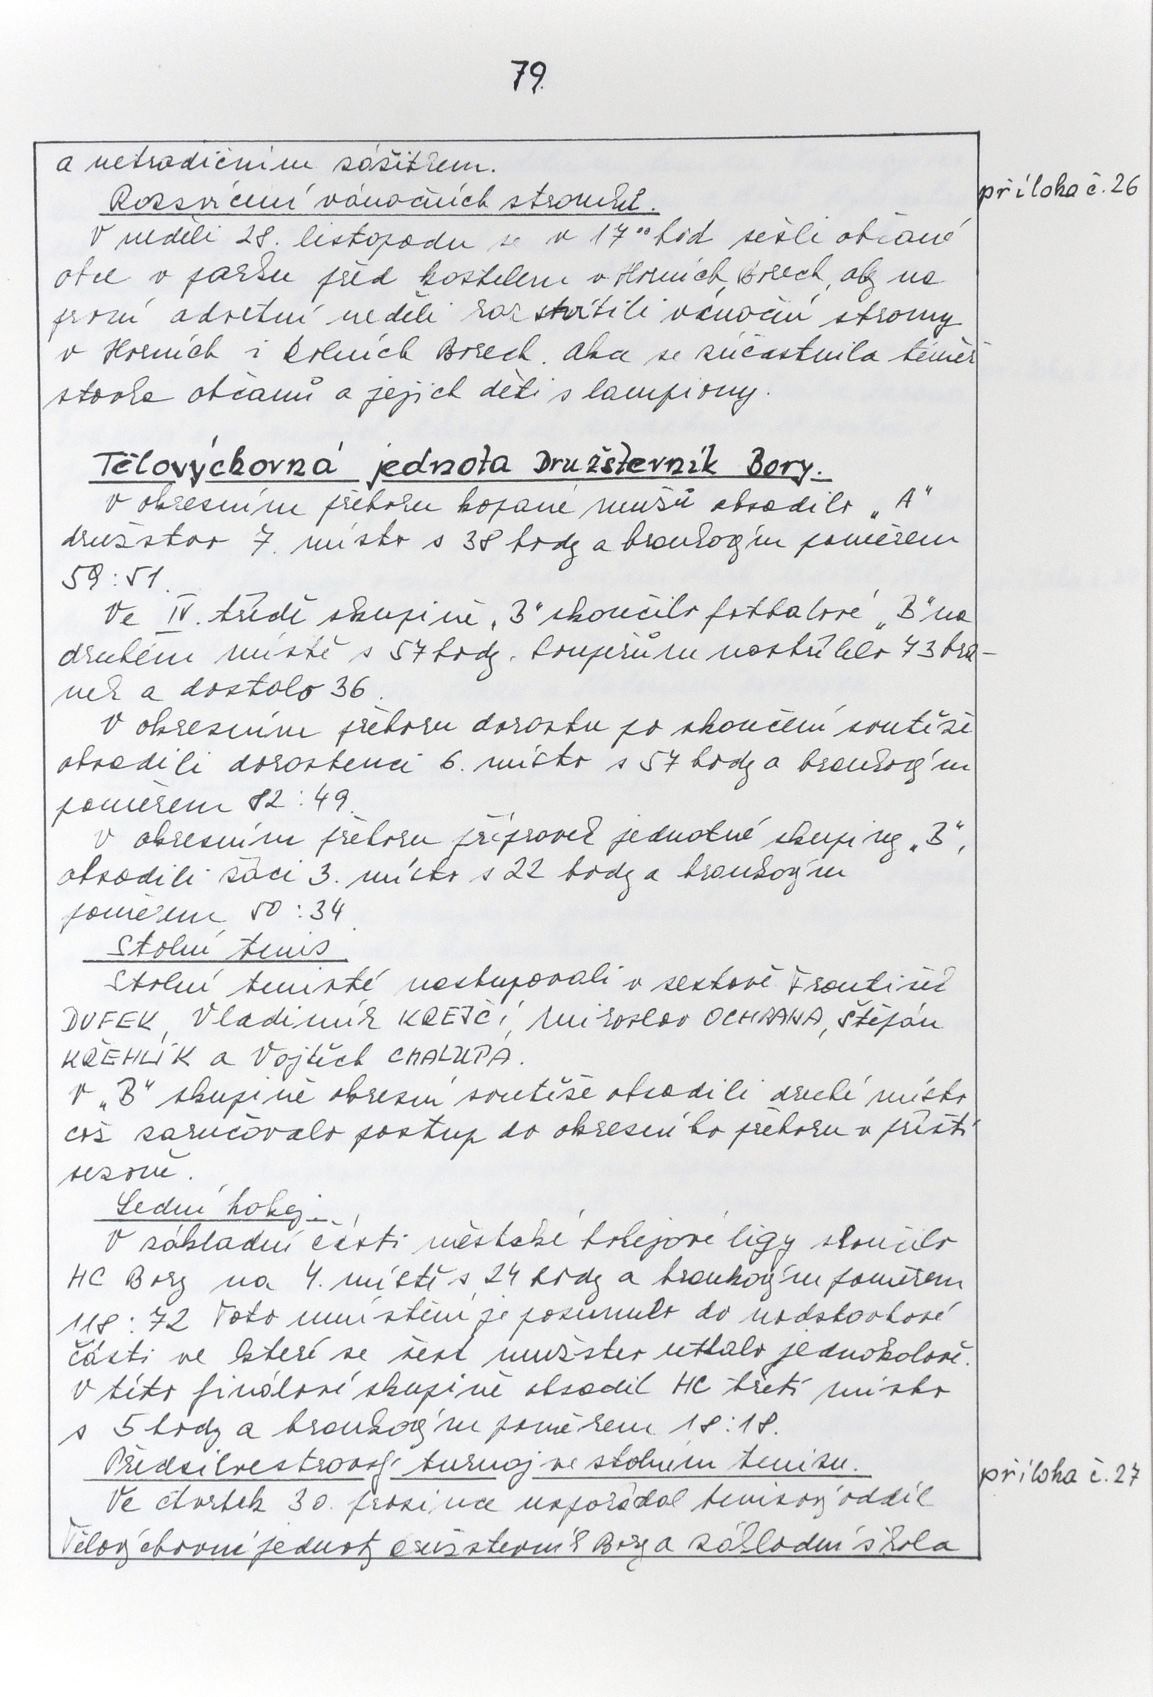 79.
a netradičním zážitkem.
Rozsvícení vánočních stromků.
příloha č. 26
V neděli 28. listopadu se v 17⁰⁰ hod sešli občané
obce v parku před kostelem v Horních Borech, aby na
první adventní neděli rozsvítili vánoční stromy
v Horních i Dolních Borech. Akce se zúčastnila téměř
stovka občanů a jejich dětí s lampiony.
Tělovýchovná jednota Družstevník Bory.
V okresním přeboru kopané mužů obsadilo „A"
družstvo 7. místo s 38 body a brankovým poměrem
59:51.
Ve IV. třídě skupině „B" skončilo fotbalové „B" na
druhém místě s 57 body. Soupeřům nastřílelo 73 bra-
nek a dostalo 36.
V okresním přeboru dorostu po skončení soutěže
obsadili dorostenci 6. místo s 57 body a brankovým
poměrem 82:49.
V okresním přeboru přípravek jednotné skupiny „B",
obsadili žáci 3. místo s 22 body a brankovým
poměrem 50:34.
Stolní tenis
Stolní tenisté nastupovali v sestavě František
DUFEK, Vladimír KREJČÍ, Miroslav OCHRANA, Štěpán
KŘEHLÍK a Vojtěch CHALUPA.
V „B" skupině okresní soutěže obsadili druhé místo
což zaručovalo postup do okresního přeboru v příští
sezoně.
Lední hokej.
V základní části městské hokejové ligy skončilo
HC Bory na 4. místě s 24 body a brankovým poměrem
118:72 Toto umístění je posunulo do nadstavbové
části ve které se šest mužstev utkalo jednokolově.
V této finálové skupině obsadil HC třetí místo
s 5 body a brankovým poměrem 18:18.
Předsilvestrovský turnaj ve stolním tenisu.
příloha č. 27
Ve čtvrtek 30. prosince uspořádal tenisový oddíl
Tělovýchovné jednoty Družstevník Bory a základní škola